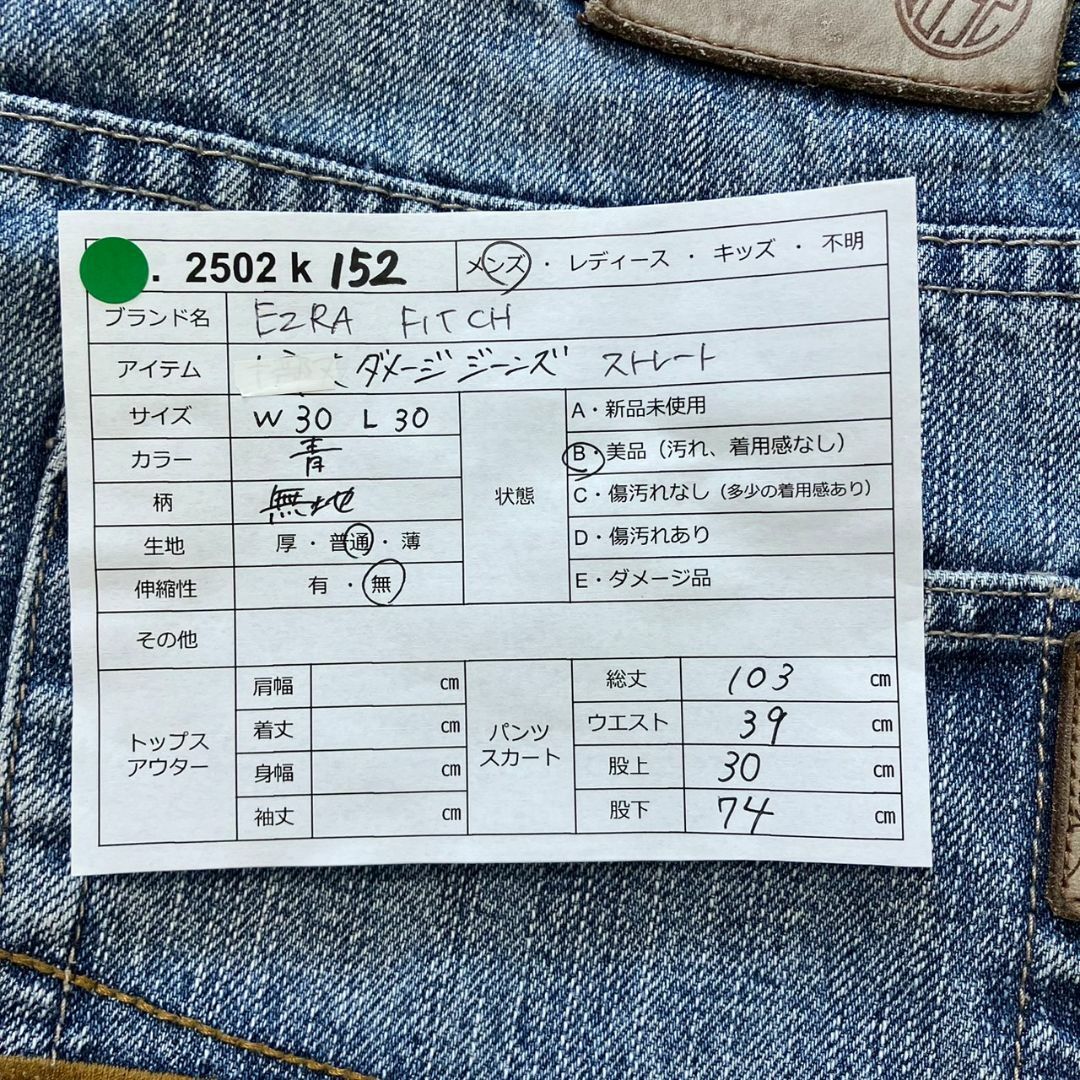 . 2502 k 152 メンズ ・ レディース ・ キッズ ・ 不明
ブランド名 EZRA FITCH
アイテム ダメージジーンズ ストレート
サイズ W 30 L 30
カラー 青
柄 無地
生地 厚・普通・薄
伸縮性 有・無
状態
A・新品未使用
B・美品（汚れ、着用感なし）
C・傷汚れなし（多少の着用感あり）
D・傷汚れあり
E・ダメージ品
その他
トップス
アウター
肩幅 cm
着丈 cm
身幅 cm
袖丈 cm
パンツ
スカート
総丈 103 cm
ウエスト 39 cm
股上 30 cm
股下 74 cm